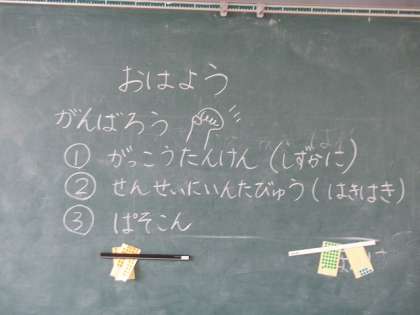 おはよう
がんばろう
① がっこうたんけん (しずかに)
② せんせいにいんたびゅう (はきはき)
③ ぱそこん